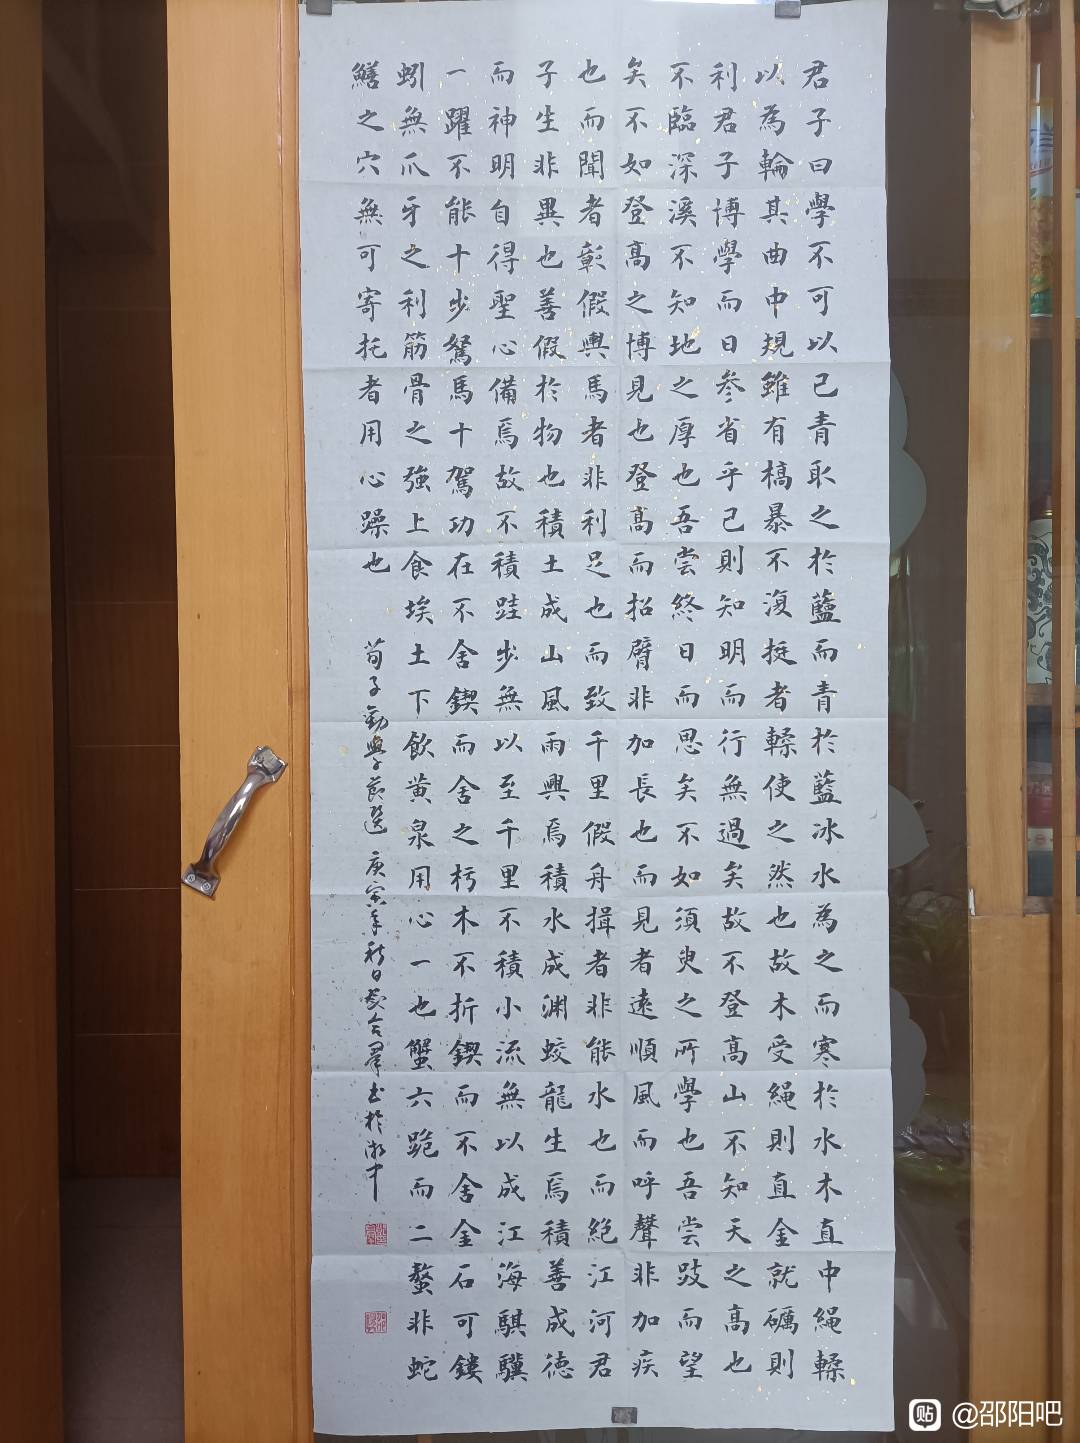 君子曰學不可以已青取之於藍而青於藍冰水為之而寒於水木直中繩輮
以為輪其曲中規雖有槁暴不復挺者輮使之然也故木受繩則直金就礪則
利君子博學而日參省乎己則知明而行無過矣故不登高山不知天之高也
不臨深溪不知地之厚也吾嘗終日而思矣不如須臾之所學也吾嘗跂而望
矣不如登高之博見也登高而招臂非加長也而見者遠順風而呼聲非加疾
也而聞者彰假輿馬者非利足也而致千里假舟揖者非能水也而絕江河君
子生非異也善假於物也積土成山風雨興焉積水成渊蛟龍生焉積善成德
而神明自得聖心備焉故不積跬步無以至千里不積小流無以成江海騏驥
一躍不能十步駑馬十駕功在不舍鍥而舍之朽木不折鍥而不舍金石可鏤
蚓無爪牙之利筋骨之強上食埃土下飲黃泉用心一也蟹六跪而二螯非蛇
鱔之穴無可寄托者用心躁也
荀子勸學節選 庚寅年秋日合群书於湖中
貼 @邵阳吧